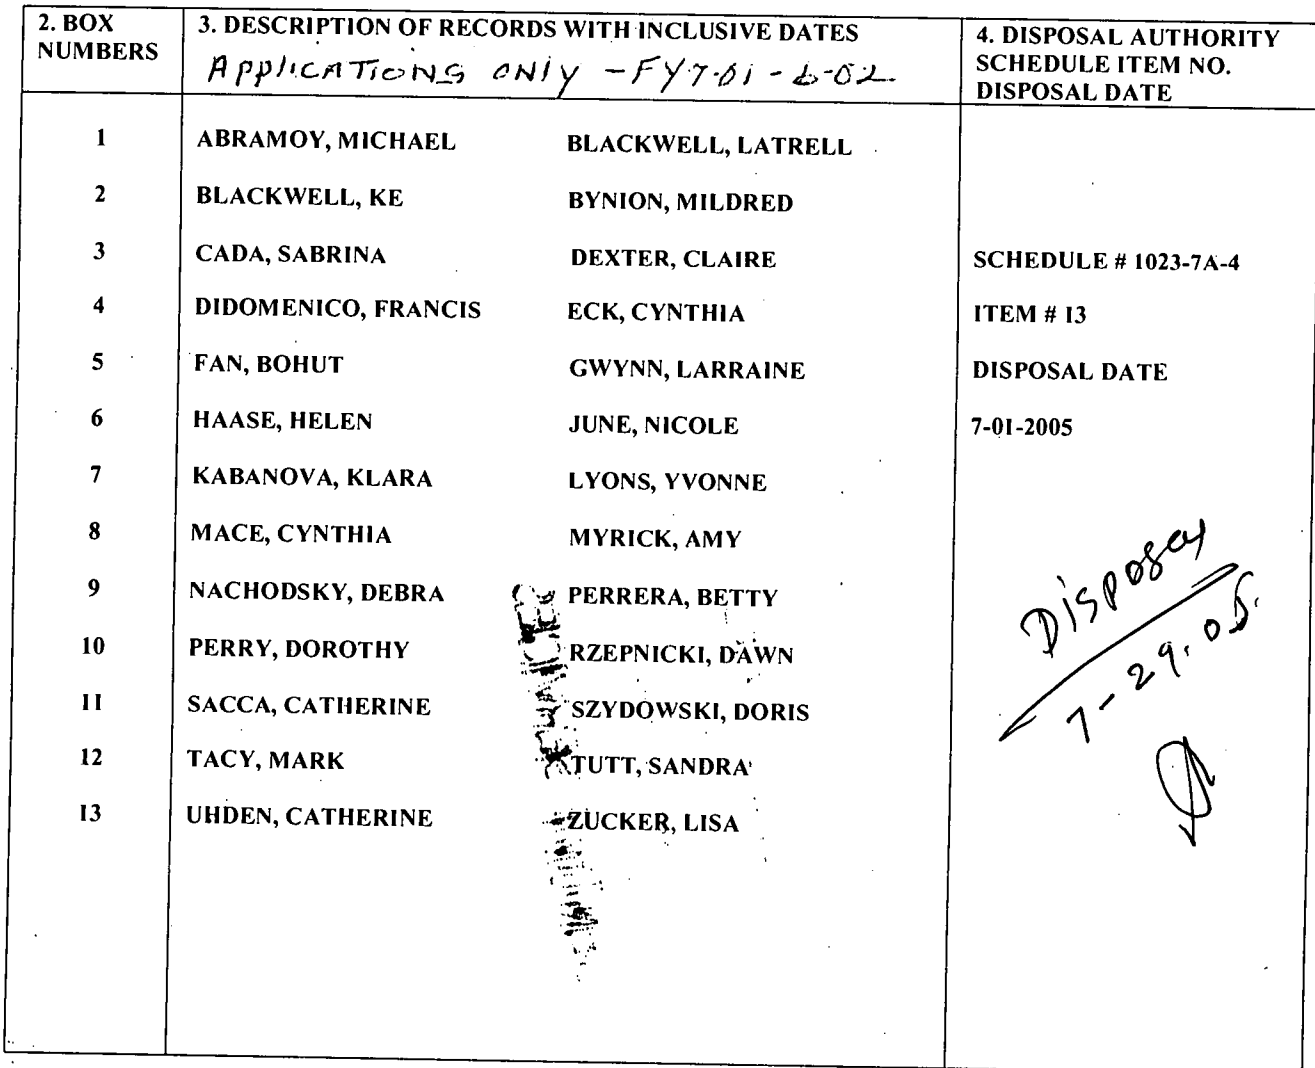 2. BOX NUMBERS
3. DESCRIPTION OF RECORDS WITH INCLUSIVE DATES
APPlICATIONS ONlY - FY7-01 - 6-02
4. DISPOSAL AUTHORITY
SCHEDULE ITEM NO.
DISPOSAL DATE
1 ABRAMOY, MICHAEL BLACKWELL, LATRELL
2 BLACKWELL, KE BYNION, MILDRED
3 CADA, SABRINA DEXTER, CLAIRE SCHEDULE # 1023-7A-4
4 DIDOMENICO, FRANCIS ECK, CYNTHIA ITEM # 13
5 FAN, BOHUT GWYNN, LARRAINE DISPOSAL DATE
6 HAASE, HELEN JUNE, NICOLE 7-01-2005
7 KABANOVA, KLARA LYONS, YVONNE
8 MACE, CYNTHIA MYRICK, AMY
9 NACHODSKY, DEBRA PERRERA, BETTY
10 PERRY, DOROTHY RZEPNICKI, DAWN
11 SACCA, CATHERINE SZYDOWSKI, DORIS
12 TACY, MARK TUTT, SANDRA
13 UHDEN, CATHERINE ZUCKER, LISA
Disposal
7-29.05.